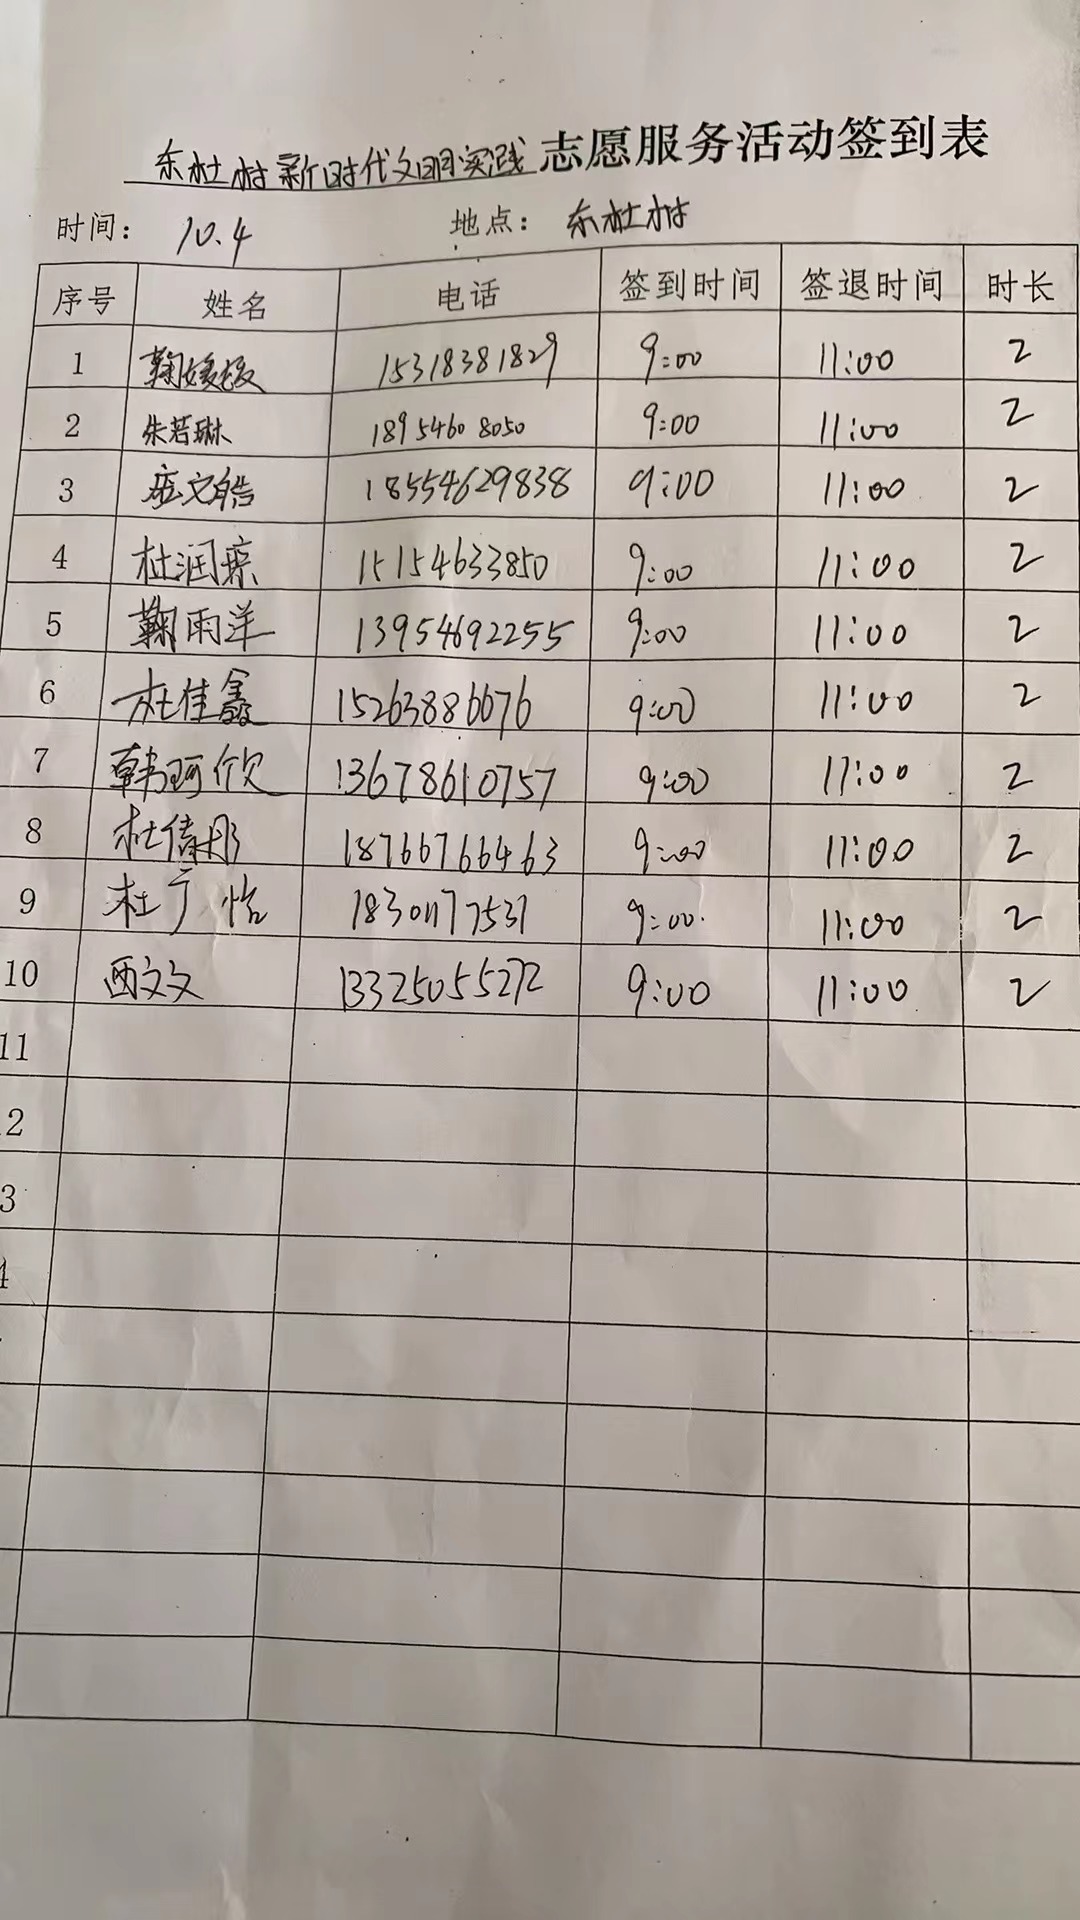 东杜村新时代文明实践志愿服务活动签到表
时间： 10.4 地点： 东杜村
序号 姓名 电话 签到时间 签退时间 时长
1 15318381829 9:00 11:00 2
2 朱若琳 18954608050 9:00 11:00 2
3 18554629838 9:00 11:00 2
4 15154633850 9:00 11:00 2
5 鞠雨洋 13954692255 9:00 11:00 2
6 杜佳鑫 15263886676 9:00 11:00 2
7 韩珂欣 13678610757 9:00 11:00 2
8 18766766463 9:00 11:00 2
9 杜广怡 9:00 11:00 2
10 西文文 13325055272 9:00 11:00 2
11
2
3
4